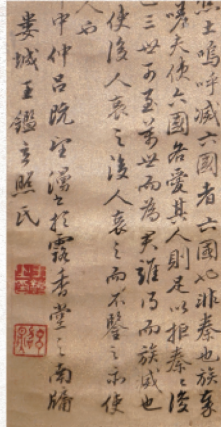 土嗚呼滅六國者六國也非秦也族秦
嗟夫使六國各愛其人則足以拒秦〻復
三世可至萬世而為君誰得而族滅也
使後人哀之後人哀之而不鑒之亦使
人也
中仲呂既望漫書於露香堂之南牖
婁城王鑑玄照氏